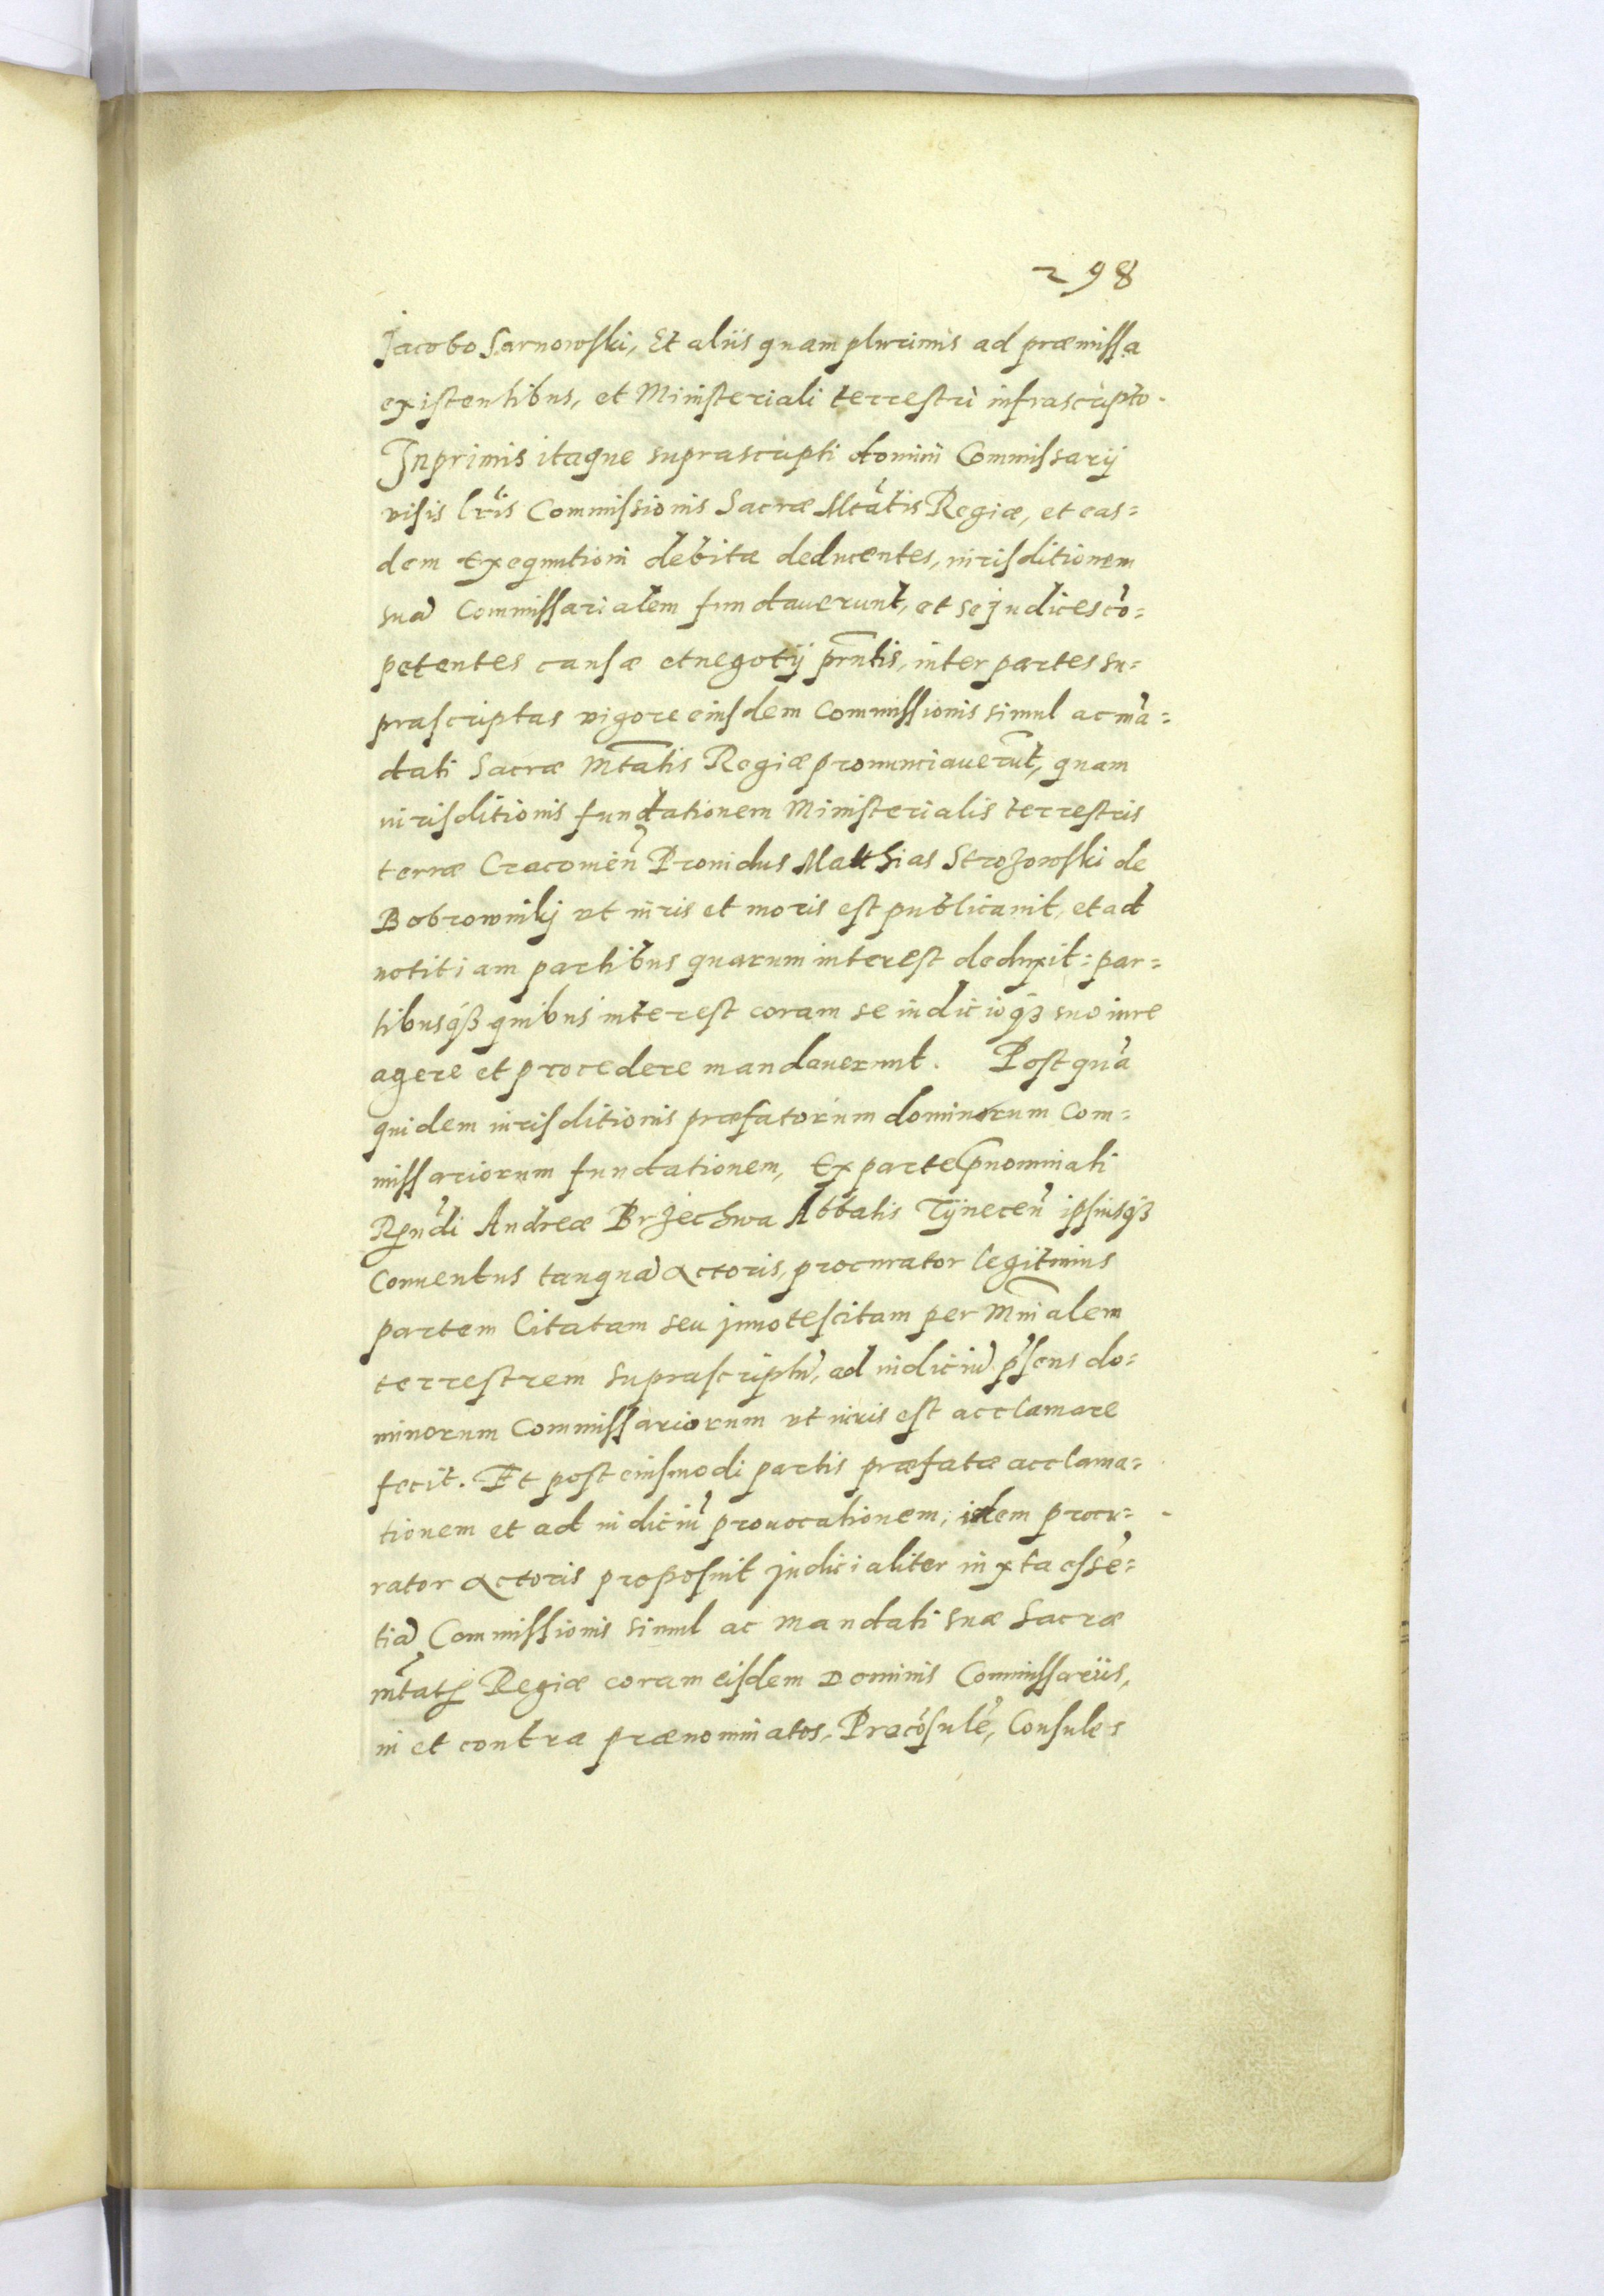 298
Jacobo Sarnowski, Et aliis quam plurimis ad præmissa
existentibus, et Ministeriali terrestri infrascripto.
Inprimis itaque suprascripti domini Commissarij
visis lr̃is Commissionis Sacræ Mtãtis Regiæ, et eas=
dem Exequutioni debitæ deducentes, iurisditionem
suã Commissarialem fundauerunt, et se judices cõ=
petentes causæ et negotij prñtis, inter partes su=
prascriptas vigore eiusdem Commissionis simul ac mã=
dati Sacræ Mtãtis Regiæ pronunciauerũt, quam
iurisditionis fundationem Ministerialis terrestris
terræ Cracouieñ Prouidus Matthias Strozowski de
Bobrowniki vt iuris et moris est publicauit, et ad
notitiam partibus quarum interest deduxit: par=
tibusqꝫ quibus interest coram se iudicioqꝫ suo iure
agere et procedere mandauerunt. Post quã
quidem iurisditionis præfatorum dominorum Com=
missariorum fundationem, Ex parte p̃nominati
Rꝑñdi Andreæ Brzechwa Abbatis Tÿneceñ ipsiusqꝫ
Conuentus tanquã Actoris, procurator legitimus
partem Citatam seu jnnotescitam per Mñialem
terrestrem suprascriptũ, ad iudiciũ p̃sens do=
minorum Commissariorum vt iuris est acclamare
fecit. Et post eiusmodi partis præfatæ acclama=
tionem et ad iudiciũ prouocationem, idem procu=
rator Actoris proposuit judicialiter iuxta essẽ=
tiã Commissionis simul ac Mandati suæ Sacræ
mt̃atꝭ Regiæ coram eisdem Dominis Commissariis,
in et contra prænominatos, Precõsulẽ, Consules